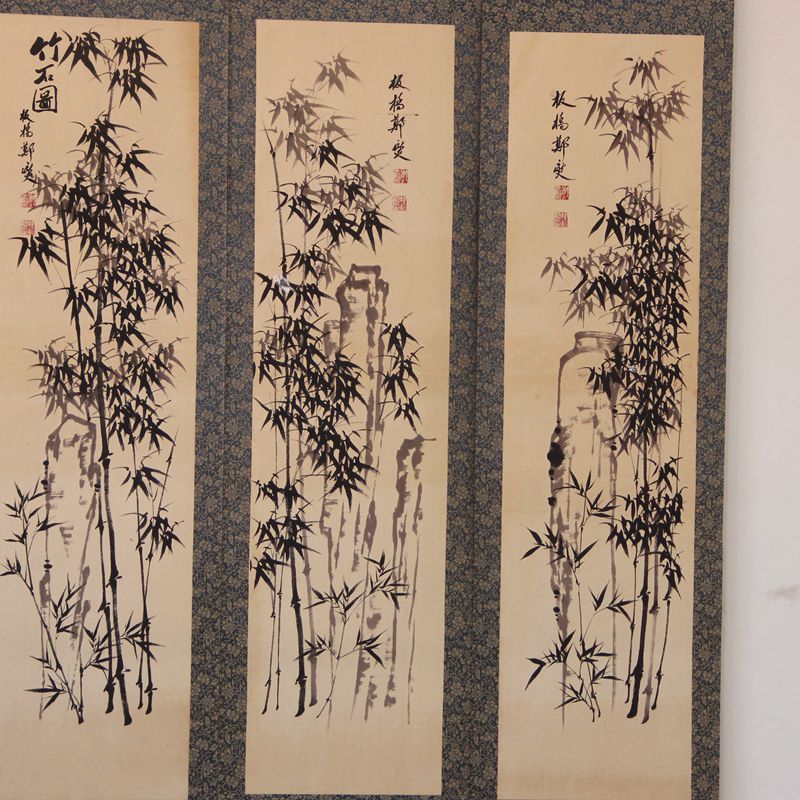 竹石圖
板橋鄭燮
板橋鄭燮
板橋鄭燮